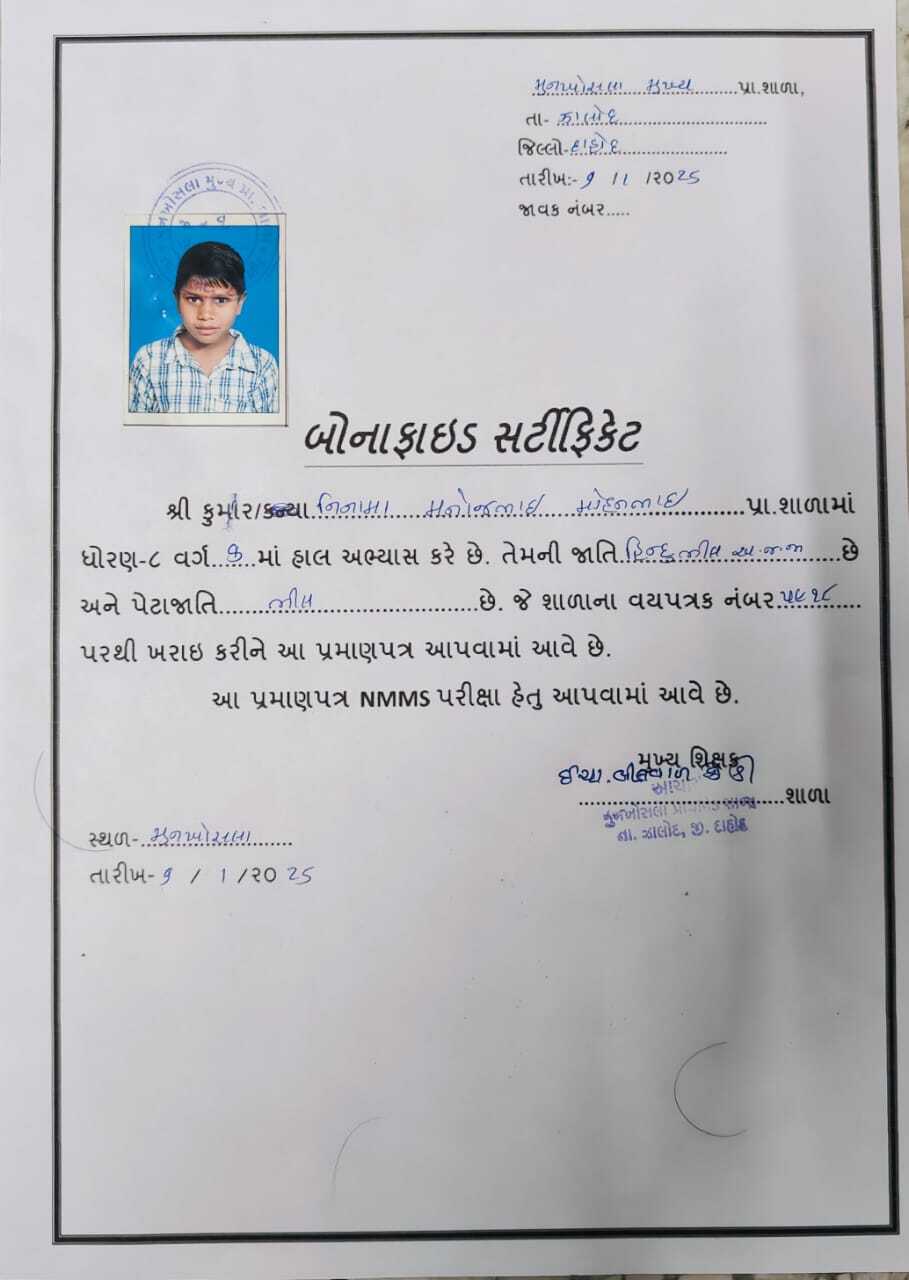 મુનખોસલા મુખ્ય પ્રા.શાળા,
તા- ઝાલોદ
જિલ્લો- દાહોદ
તારીખ:- ૭ /1 /૨૦25
જાવક નંબર.....
બોનાફાઇડ સર્ટીફિકેટ
શ્રી કુમાર/કન્યા નિનામા મનોજભાઇ મોહનભાઇ પ્રા.શાળામાં
ધોરણ-૮ વર્ગ માં હાલ અભ્યાસ કરે છે. તેમની જાતિ હિન્દુ ભીલ અ.જ.જા છે
અને પેટાજાતિ ભીલ છે. જે શાળાના વયપત્રક નંબર
પરથી ખરાઇ કરીને આ પ્રમાણપત્ર આપવામાં આવે છે.
આ પ્રમાણપત્ર NMMS પરીક્ષા હેતુ આપવામાં આવે છે.
મુખ્ય શિક્ષક
ઈચા.
શાળા
મુનખોસલા પ્રાથમિક શાળા
તા. ઝાલોદ, જી. દાહોદ
સ્થળ- મુનખોસલા
તારીખ- ૭ / 1 /૨૦ 25